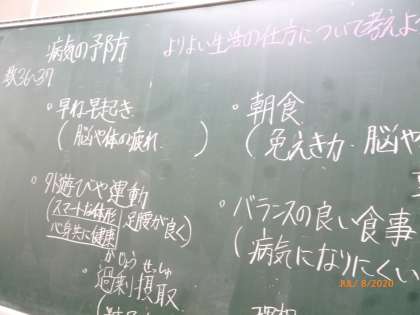 病気の予防
よりよい生活の仕方について考えよ
教36〜37
・早ね早起き
(脳や体の疲れ )
・外遊びや運動
(スマートな体形 足腰が良く)
心身共に健康
かじょう せっしゅ
・過剰摂取
・朝食
(免えき力 脳や
・バランスの良い食事
(病気になりにくい
JUL/ 8/2020